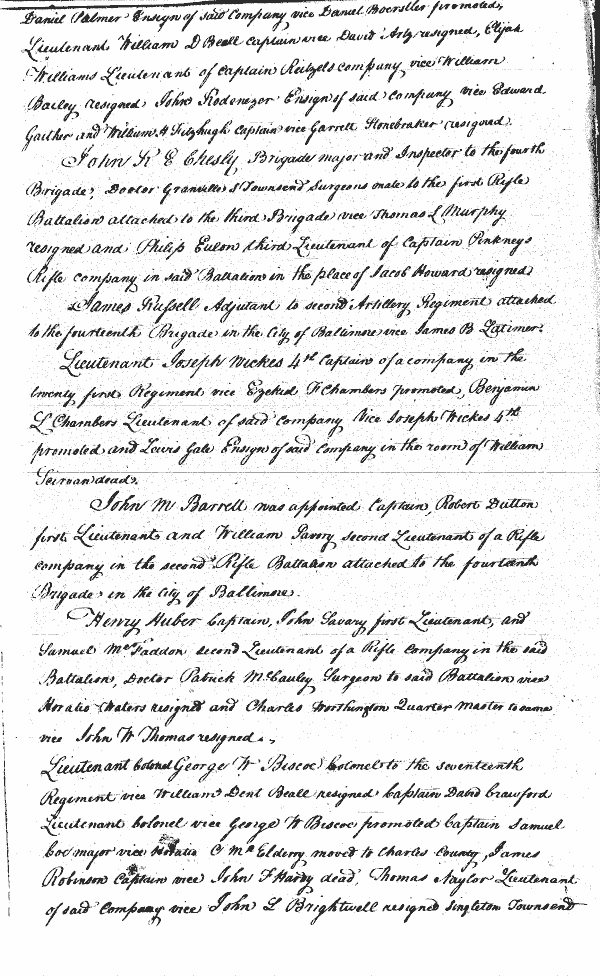 Daniel Palmer Ensign of said Company vice Daniel Boerstler promoted,
Lieutenant William D Beall Captain vice David Artz resigned, Elijah
Williams Lieutenant of Captain Reitzels company vice William
Bailey resigned John Rodenezer Ensign of said company vice Edward
Gaither and William H Fitzhugh Captain vice Garrett Stonebraker resigned.
John K E Chesly, Brigade major and Inspector to the fourth
Brigade, Doctor Granville S Townsend Surgeons mate to the first Rifle
Battalion attached to the third Brigade vice Thomas L Murphy
resigned and Philip Eulon third Lieutenant of Captain Pinkneys
Rifle company in said Battalion in the place of Jacob Howard resigned
James Russell Adjutant to second Artillery Regiment attached
to the fourteenth Brigade in the City of Baltimore vice James B Latimer.
Lieutenant Joseph Wickes 4th Captain of a company in the
twenty first Regiment vice Ezekiel F Chambers promoted, Benjamin
L Chambers Lieutenant of said company Vice Joseph Wickes 4th
promoted and Lewis Gale Ensign of said company in the room of William
dead.
John M Barrell was appointed Captain, Robert Dutton
first Lieutenant and William second Lieutenant of a Rifle
company in the second Rifle Battalion attached to the fourteenth
Brigade in the City of Baltimore.
Henry Huber Captain, John Savary first Lieutenant, and
Samuel McFaddon second Lieutenant of a Rifle Company in the said
Battalion, Doctor Patrick McCauley Surgeon to said Battalion vice
Horatio Waters resigned and Charles Worthington Quarter Master to same
vice John W Thomas resigned.
Lieutenant Colonel George W Biscoe Colonel to the seventeenth
Regiment vice William Dent Beall resigned Captain David Crawford
Lieutenant Colonel vice George W Biscoe promoted Captain Samuel
Coe major vice Horatio C McElderry moved to Charles County, James
Robinson Captain vice John F Hardy dead, Thomas Naylor Lieutenant
of said Company vice John L Brightwell resigned Singleton Townsend